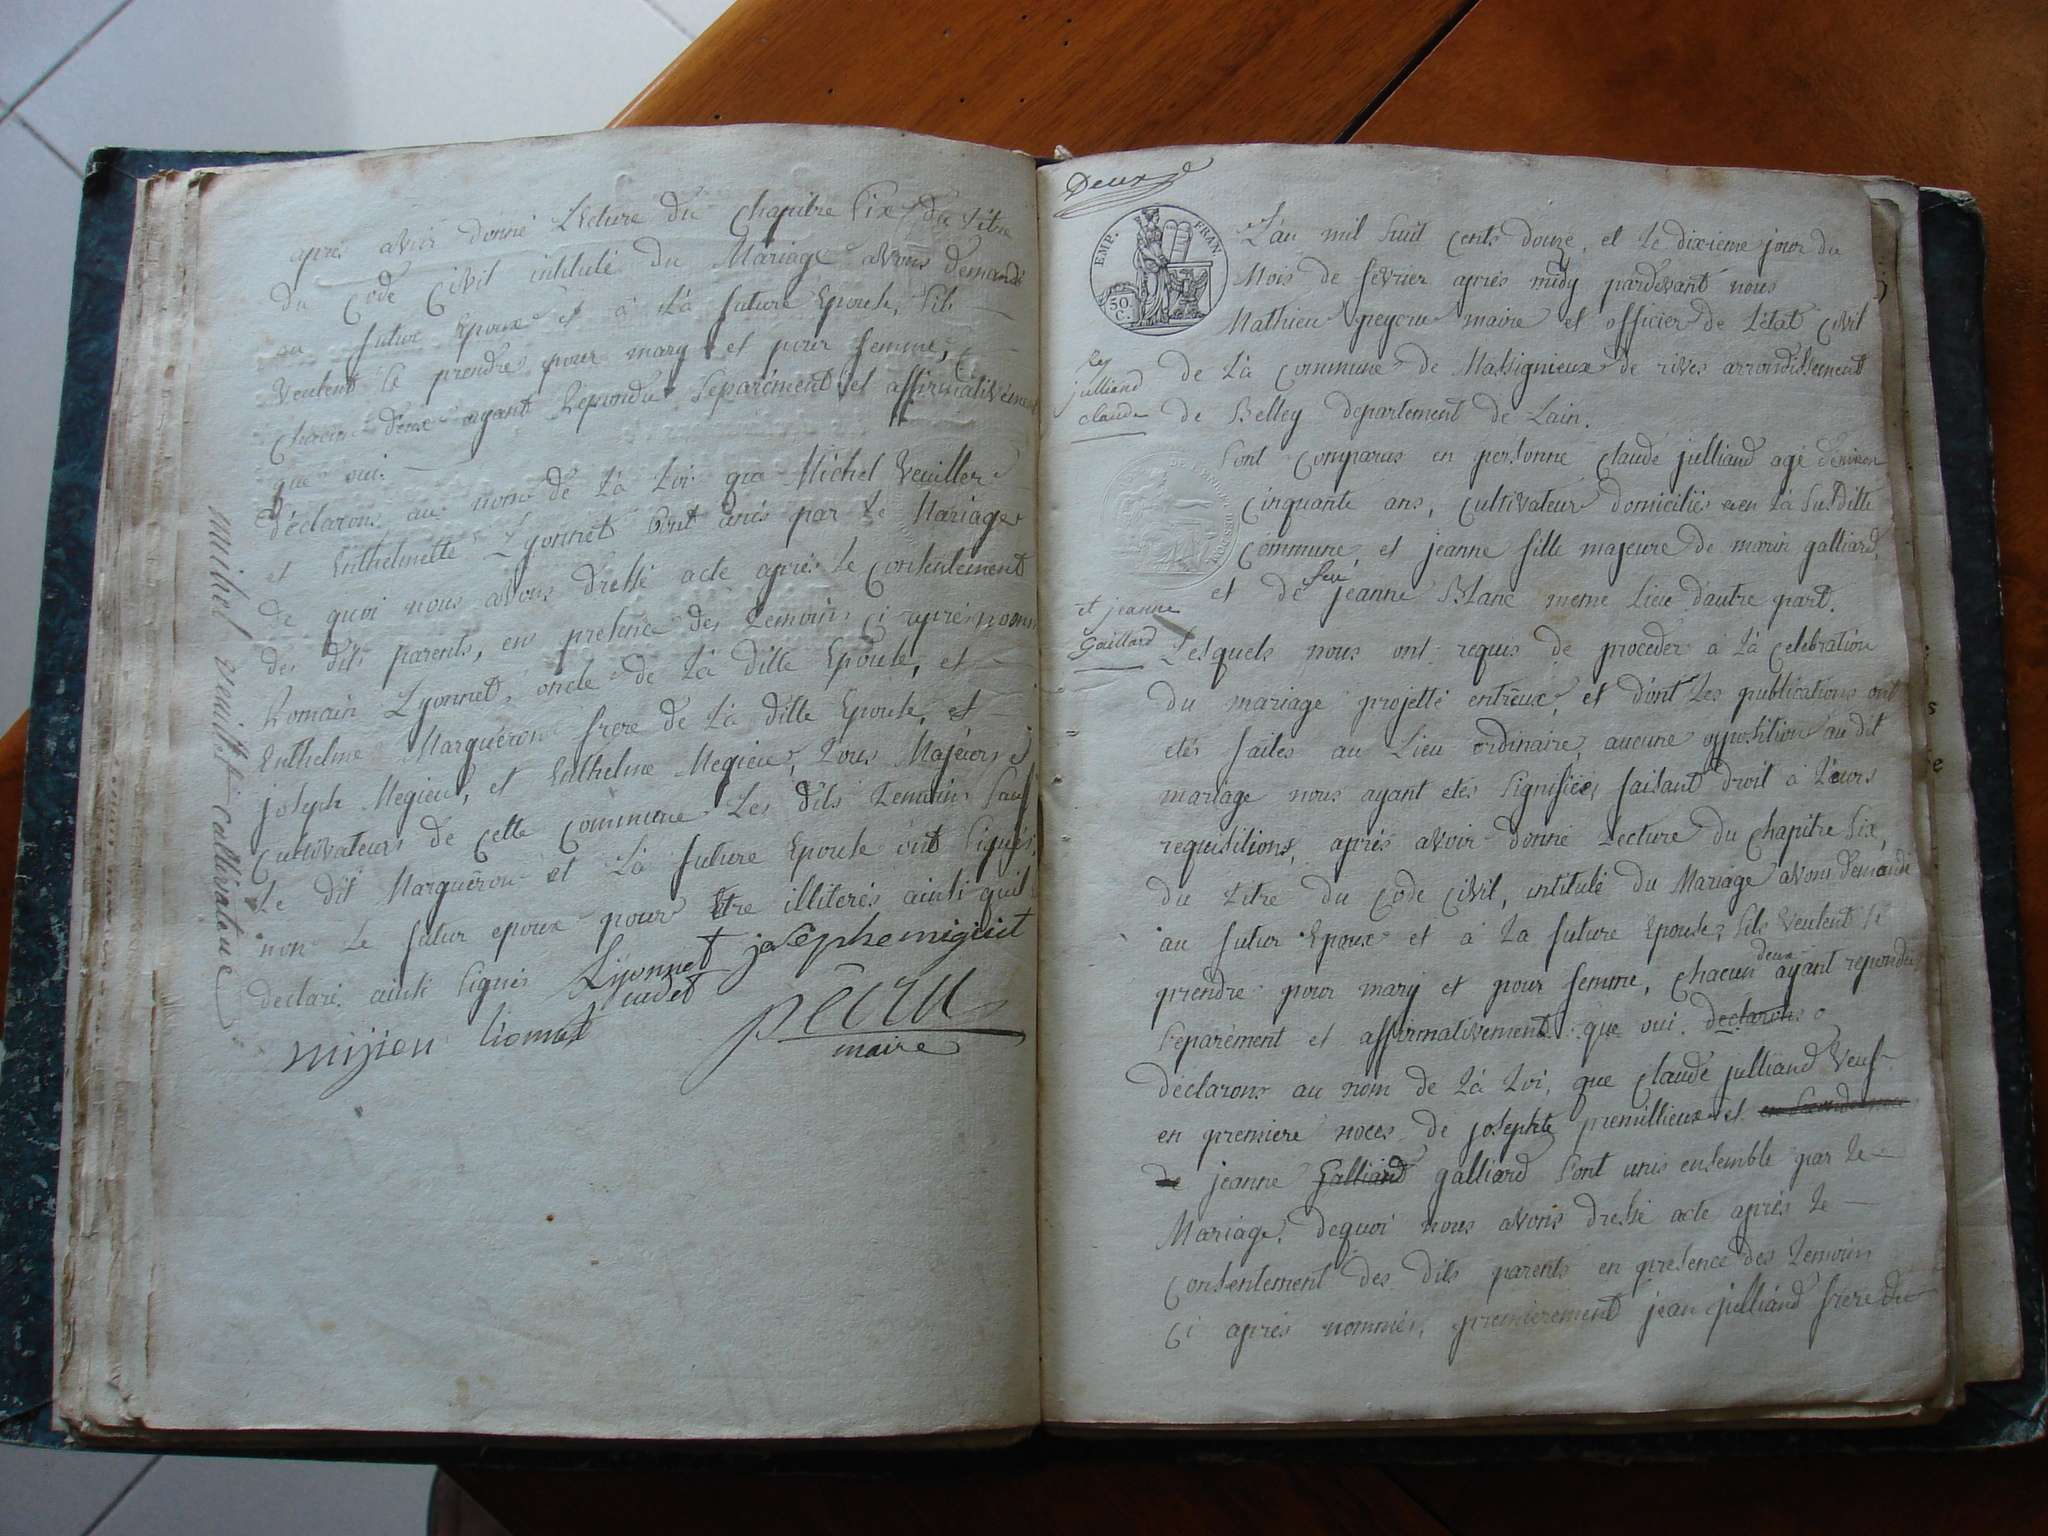 après avoir donné Lecture du Chapitre Six du titre
du Code Civil intitulé du Mariage avons demandé
au futur Epoux et à La future Epouse, Sils
Veulent se prendre pour mary et pour femme,
chacun deux ayant Repondu Separément et affirmativement
que oui.
déclarons au nom de La Loi que Michel Veuillet
et Enthelmette Lyonnet Sont unis par Le Mariage
de quoi nous avons dressé acte après Le Consentement
des dits parents, en presence des temoins ci après nommé
Romain Lyonnet, oncle de La ditte Epouse, et
Enthelme Marguéron frere de La ditte Epouse, et
joseph Megieu, et Enthelme Megieu, tous Majeurs
Cultivateurs de cette Commune Les dits temoins Sauf
Le dit Marguéron et La future Epouse ont Signés,
non Le futur epoux pour Etre illiterés ainsi quil
declaré ainsi Signés Lyonnet josephe migieut
cadet
mijieu lionnet pecru
maire
michel veuillet cultivateur
Deux
EMP. FRAN.
50 C.
L'an mil huit cents douze, et Le dixieme jour du
Mois de fevrier après midy pardevant nous
Mathieu peycru maire et officier de L'état Civil
de La Commune de Massignieux de rives arrondissement
de Belley departement de Lain.
julliand
claude
Sont Comparus en personne Claude julliand agé d'environ
Cinquante ans, Cultivateur domiciliés en La Susditte
Commune et jeanne fille majeure de marin galliard,
et de feu jeanne Blanc meme Lieu dautre part.
et jeanne
Gaillard
Lesquels nous ont requis de proceder à La Celebration
du mariage projetté entreux, et dont Les publications ont
etés faites au Lieu ordinaire, aucune opposition au dit
mariage nous ayant etés Signifiée, faisant droit à Leurs
requisitions, après avoir donné Lecture du Chapitre Six,
du titre du Code Civil, intitulé du Mariage avons demandé
au futur Epoux et à La future Epouse, Sils Veulent Se
prendre pour mary et pour femme, Chacun deux ayant repondu
Separément et affirmativement que oui. declarons
déclarons au nom de La Loi, que Claude julliand Veuf
en premiere noces de josephte premillieux et
de jeanne Galliard galliard Sont unis ensemble par Le
Mariage, dequoi nous avons dressé acte après Le
Consentement des dits parents en presence des temoins
Ci après nommés, premierement jean julliand frere du